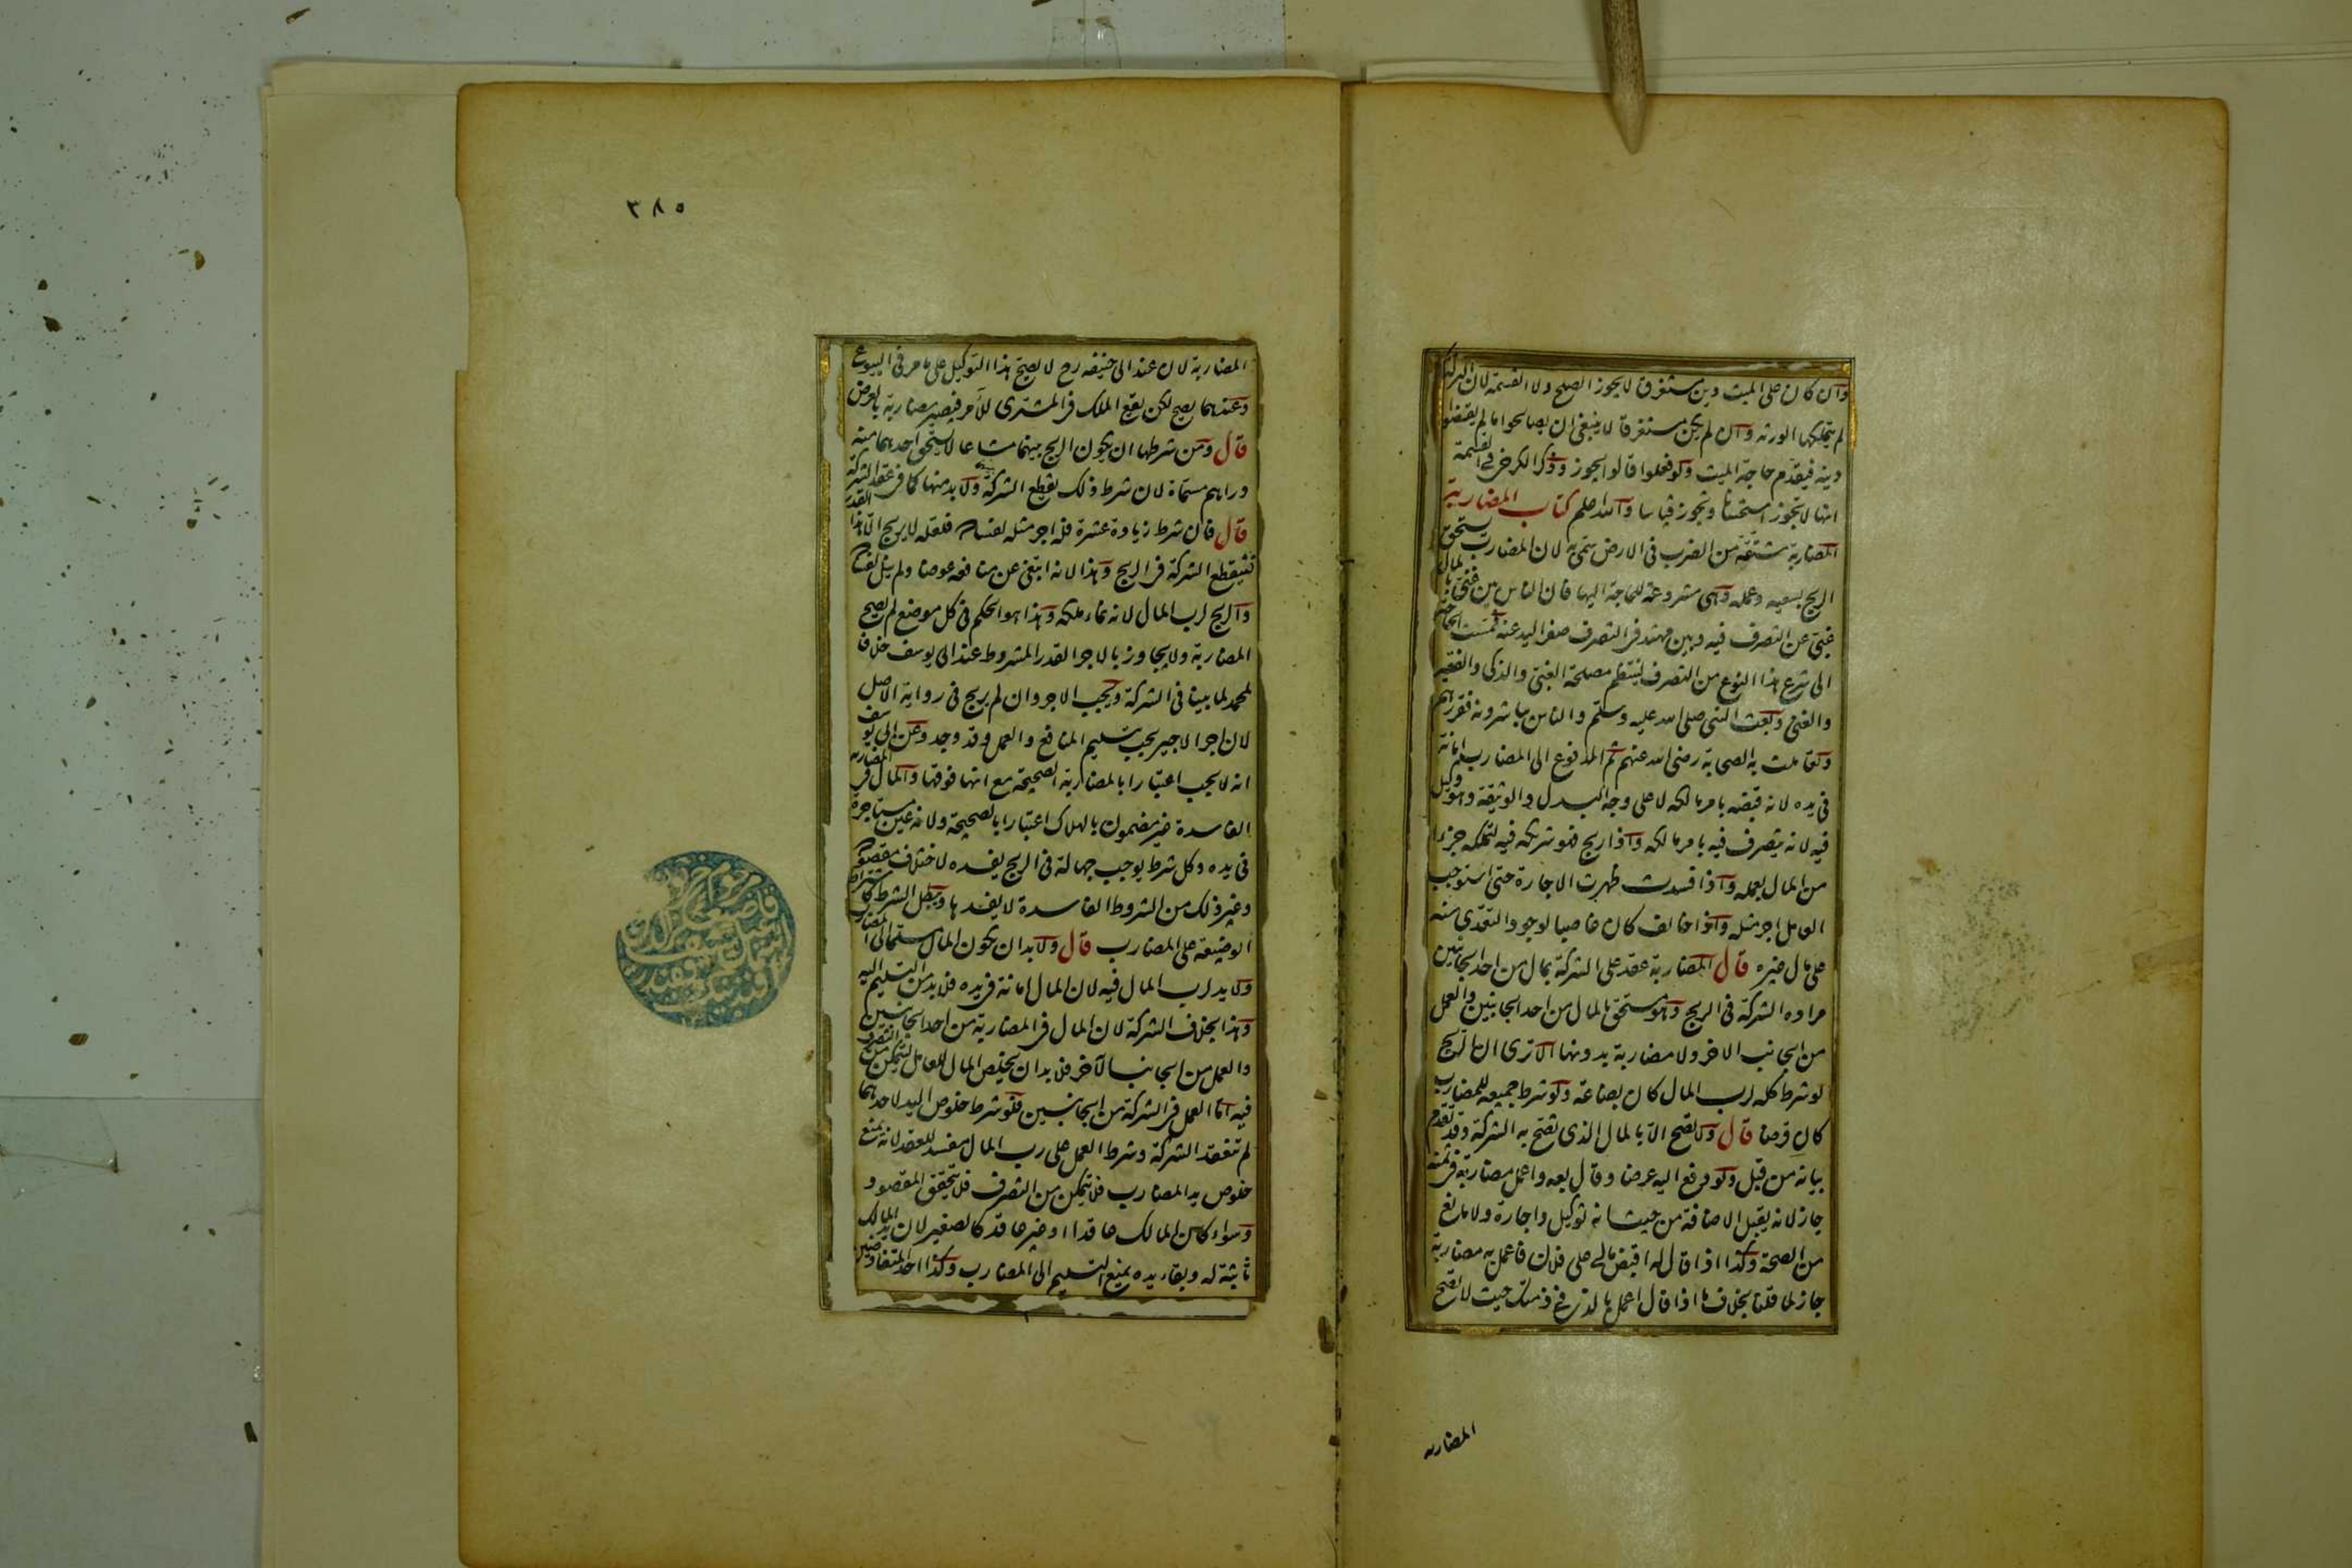 وان كان على الميت دين مستغرق لا يجوز الصلح ولا القسمة لان التركة
لم يتملكها الورثة وان لم يكن مستغرقا لا ينبغي ان يصالحوا ما لم يقضوا
دينه فيقدم حاجة الميت ولو فعلوا قالوا يجوز وذكر الكرخي في القسمة
انها لا تجوز استحسانا وتجوز قياسا والله اعلم كتاب المضاربة
المضاربة مشتقة من الضرب في الارض سمي به لان المضارب يستحق
الربح بسعيه وعمله وهي مشروعة للحاجة اليها فان الناس بين غني بالمال
غبي عن التصرف فيه وبين مهتد في التصرف صفر اليد عنه فمست الحاجة
الى شرع هذا النوع من التصرف لينتظم مصلحة الغبي والذكي والفقير
والغني وبعث النبي صلى الله عليه وسلم والناس يباشرونه فقررهم
وتعاملت به الصحابة رضي الله عنهم ثم المدفوع الى المضارب امانة
في يده لانه قبضه بامر مالكه لا على وجه البدل والوثيقة وهو وكيل
فيه لانه يتصرف فيه بامر مالكه واذا ربح فهو شريكه فيه لتملكه جزءا
من المال بعمله واذا فسدت ظهرت الاجارة حتى استوجب
العامل اجر مثله واذا خالف كان غاصبا لوجود التعدي منه
على مال غيره قال المضاربة عقد على الشركة بمال من احد الجانبين
مراده الشركة في الربح وهو مستحق بالمال من احد الجانبين والعمل
من الجانب الاخر ولا مضاربة بدونها الا ترى ان الربح
لو شرط كله لرب المال كان بضاعة ولو شرط جميعه للمضارب
كان قرضا قال ولا تصح الا بالمال الذي تصح به الشركة وقد تقدم
بيانه من قبل ولو دفع اليه عرضا وقال بعه واعمل مضاربة في ثمنه
جاز لانه يقبل الاضافة من حيث انه توكيل واجارة ولا مانع
من الصحة وكذا اذا قال له اقبض مالي على فلان فاعمل به مضاربة
جاز لما قلنا بخلاف ما اذا قال اعمل بالدين في ذمتك حيث لا تصح
المضاربه
٣٨٥
المضاربة لان عند ابي حنيفه رح لا يصح هذا التوكيل على ما مر في البيوع
وعندهما يصح لكن يقع الملك في المشترى للآمر فيصير مضاربة بالعرض
قال ومن شرطها ان يكون الربح بينهما مشاعا لا يستحق احدهما منه
دراهم مسماة لان شرط ذلك يقطع الشركة ولا بد منها كما في عقد الشركة
قال فان شرط زيادة عشرة فله اجر مثله لفساده فلعله لا يربح الا هذا القدر
فيقطع الشركة في الربح وهذا لانه ابتغى عن منافعه عوضا ولم ينل لفساده
والربح لرب المال لانه نماء ملكه وهذا هو الحكم في كل موضع لم تصح
المضاربة ولا يجاوز بالاجر القدر المشروط عند ابي يوسف خلافا
لمحمد لما بينا في الشركة ويجب الاجر وان لم يربح في رواية الاصل
لان اجر الاجير يجب بتسليم المنافع والعمل وقد وجد وعن ابي يوسف
انه لا يجب اعتبارا بالمضاربة الصحيحة مع انها فوقها والمال في المضاربه
الفاسدة غير مضمون بالهلاك اعتبارا بالصحيحة ولانه عين مستاجرة
في يده وكل شرط يوجب جهالة في الربح يفسده لاختلاف مقصوده
وغير ذلك من الشروط الفاسدة لا يفسدها ويبطل الشرط كاشتراط
الوضيعة على المضارب قال ولا بد ان يكون المال مسلما الى المضارب
ولا يد لرب المال فيه لان المال امانة في يده فلا بد من التسليم اليه
وهذا بخلاف الشركة لان المال في المضاربة من احد الجانبين
والعمل من الجانب الآخر فلا بد ان يخلص المال للعامل ليتمكن من التصرف
فيه اما العمل في الشركة من الجانبين فلو شرط خلوص اليد لاحدهما
لم تنعقد الشركة وشرط العمل على رب المال مفسد للعقد لانه يمنع
خلوص يد المضارب فلا يتمكن من التصرف فلا يتحقق المقصود
وسواء كان المالك عاقدا او غير عاقد كالصغير لان يد المالك
ثابتة له وبقاء يده يمنع التسليم الى المضارب وكذا احد المتفاوضين